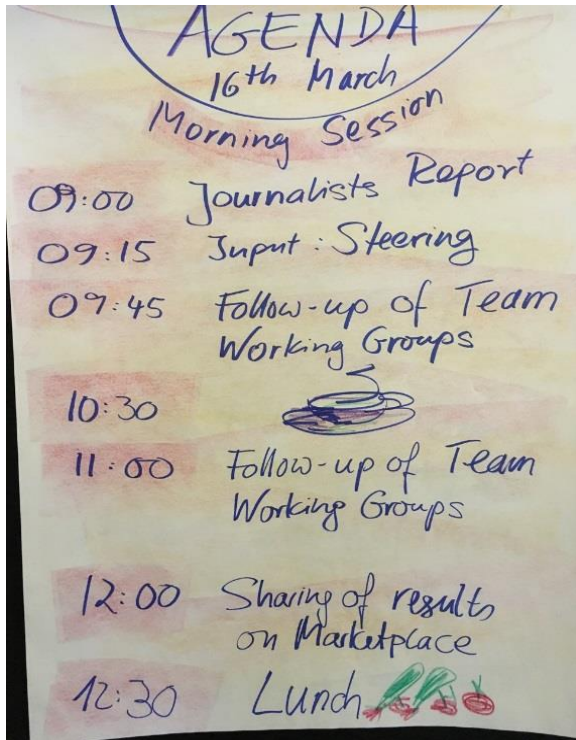 AGENDA
16th March
Morning Session
09:00 Journalists Report
09:15 Input: Steering
09:45 Follow-up of Team
Working Groups
10:30
11:00 Follow-up of Team
Working Groups
12:00 Sharing of results
on Marketplace
12:30 Lunch